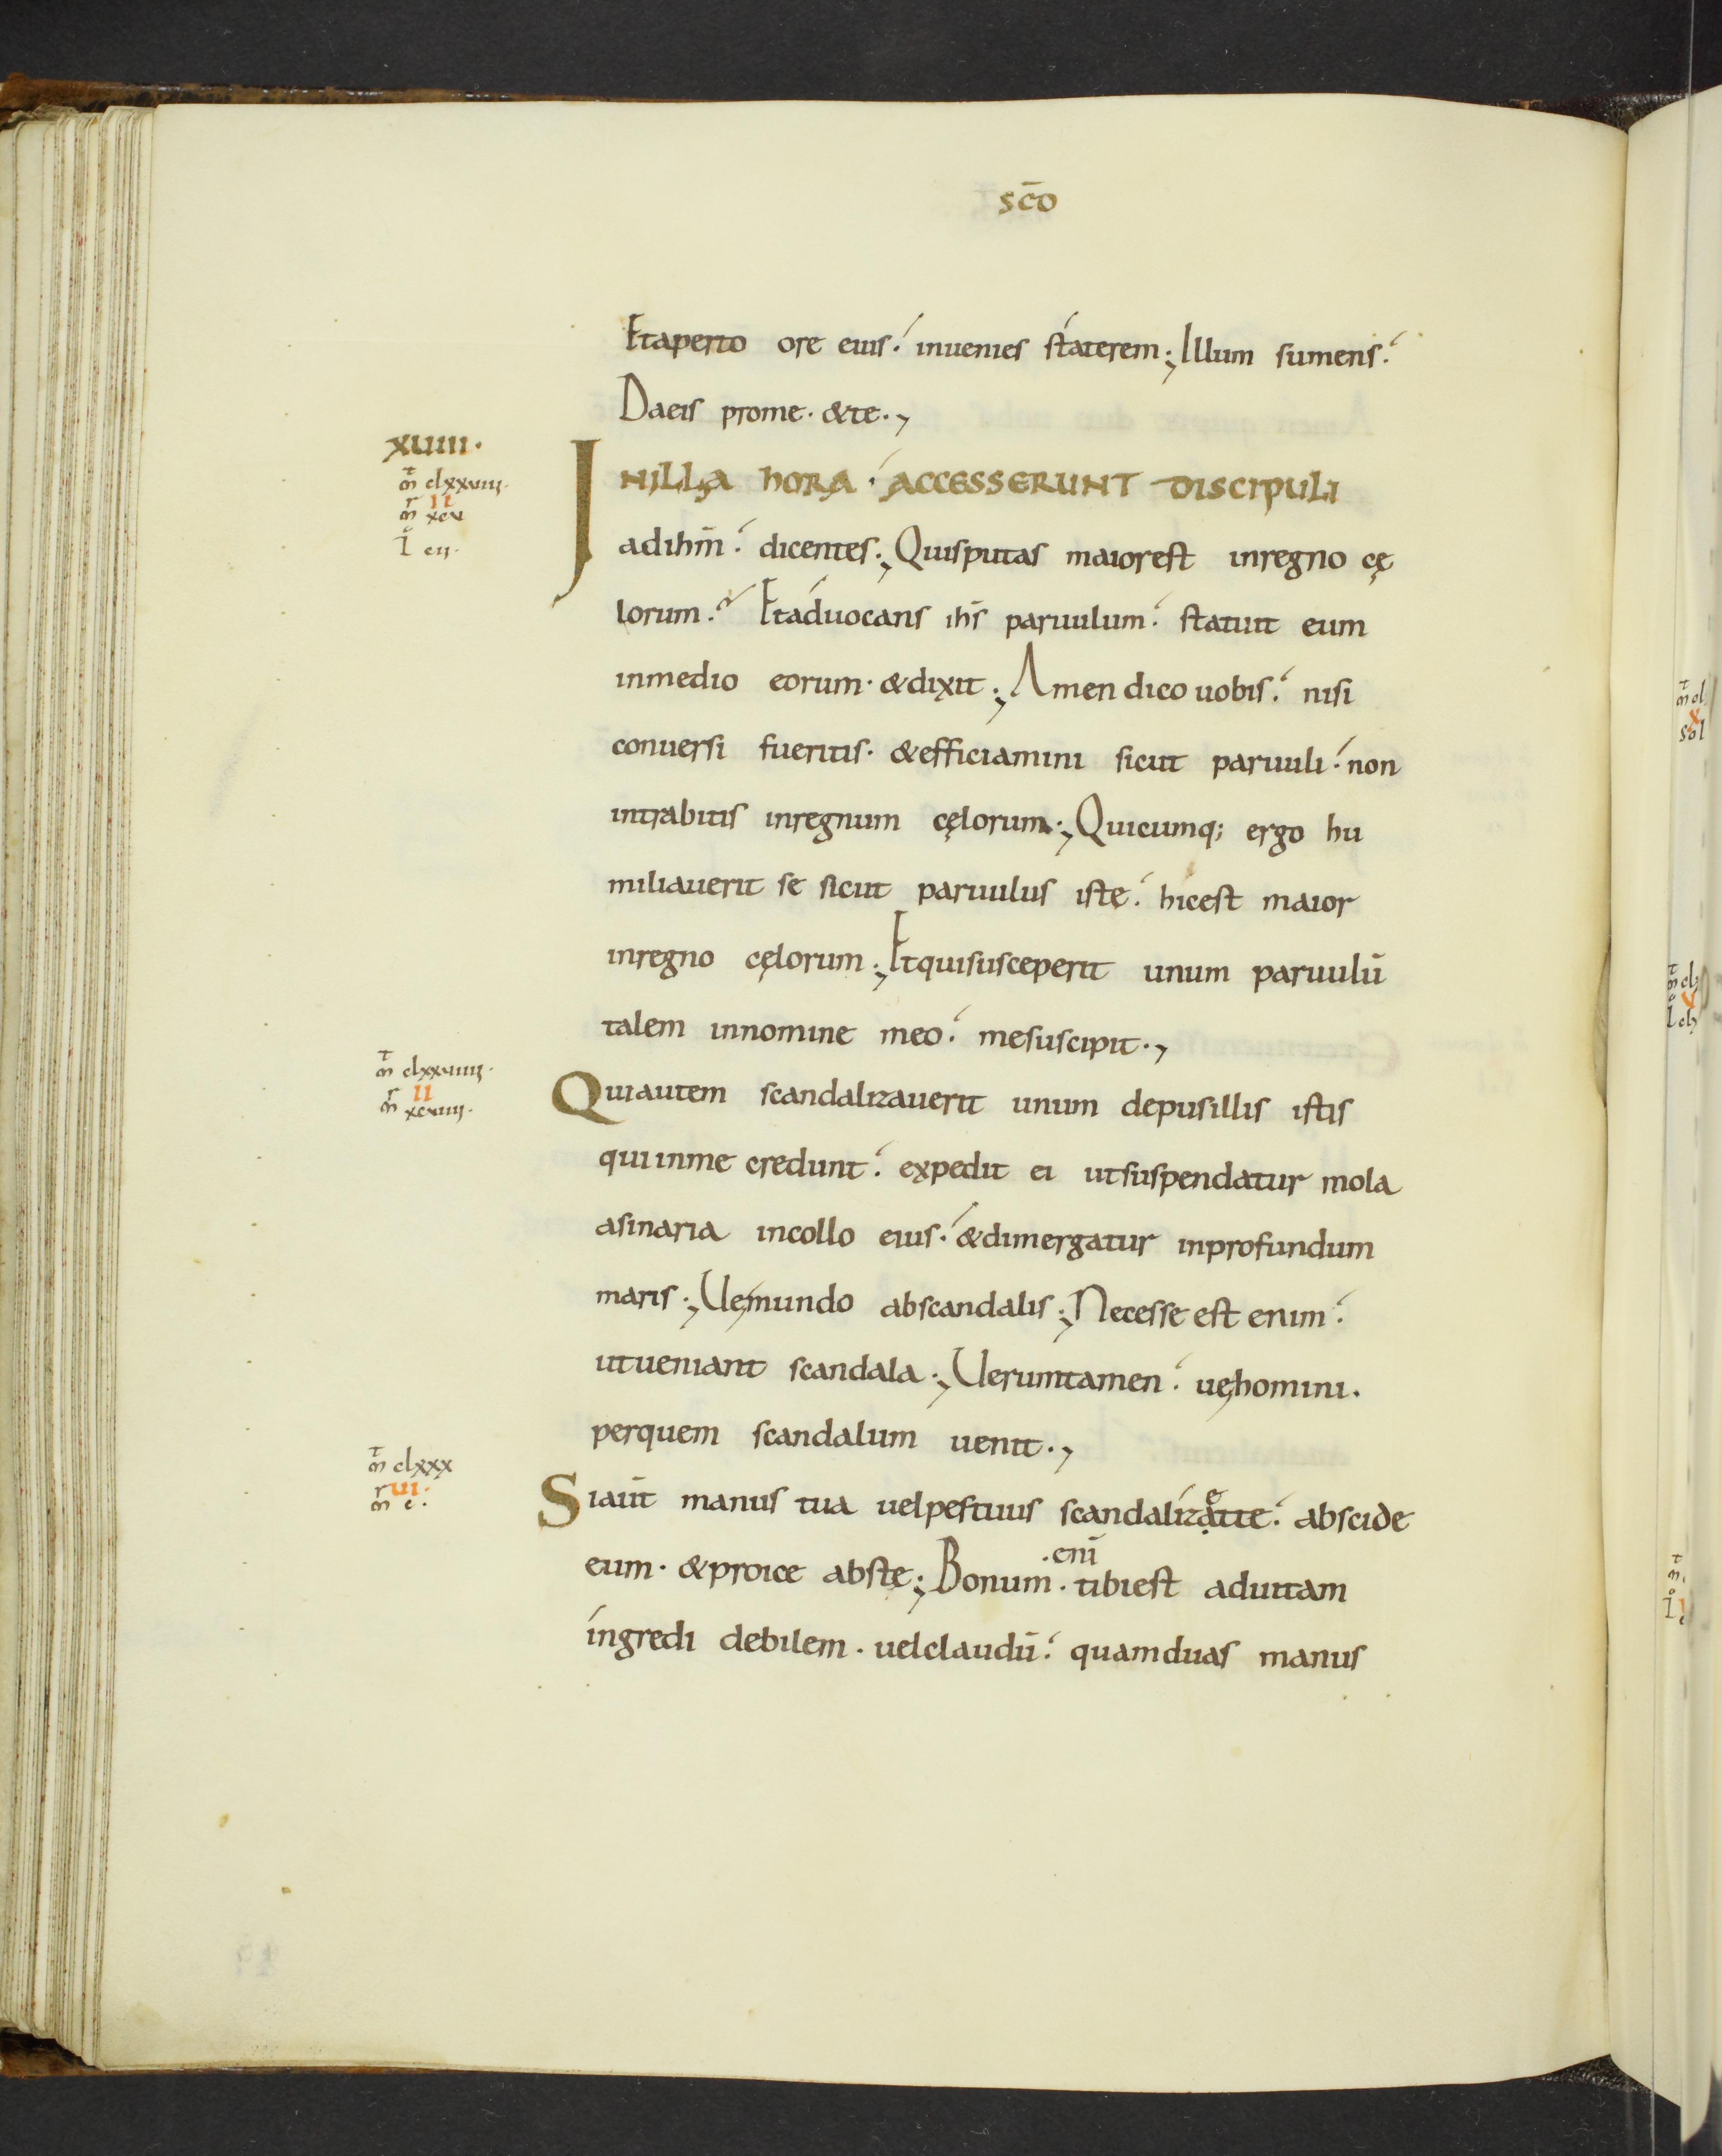 sc̄o
Etaperto ore eius. inuenies staterem; Illum sumens.
Daeis prome. &te.,
xuiiii.
m̄t clxxuiii.
mr II xcu
l̊ cii.
INILLA HORA. ACCESSERUNT DISCIPULI
adihm̄. dicentes; Quisputas maiorest inregno cę
lorum? Etaduocans ihs̄ paruulum. statuit eum
inmedio eorum. &dixit; Amen dico uobis. nisi
conuersi fueritis. &efficiamini sicut paruuli. non
intrabitis inregnum cęlorum; Quicumq; ergo hu
miliauerit se sicut paruulus iste. hicest maior
inregno cęlorum; Etquisusceperit unum paruulū
talem innomine meo. mesuscipit.,
m̄t clxxuiiii.
mr II xcuiiii.
Quiautem scandalizauerit unum depusillis istis
quiinme credunt. expedit ei utsuspendatur mola
asinaria incollo eius. &dimergatur inprofundum
maris; Uęmundo abscandalis; Necesse est enim.
utueniant scandala; Uerumtamen. uęhomini.
perquem scandalum uenit.,
m̄t clxxx
mr UI. c.
Siaut̄ manus tua uelpestuus scandalizạette. abscide
eum. &proice abste; Bonum .eni̅. tibiest aduitam
ingredi debilem. uelclaudū. quamduas manus